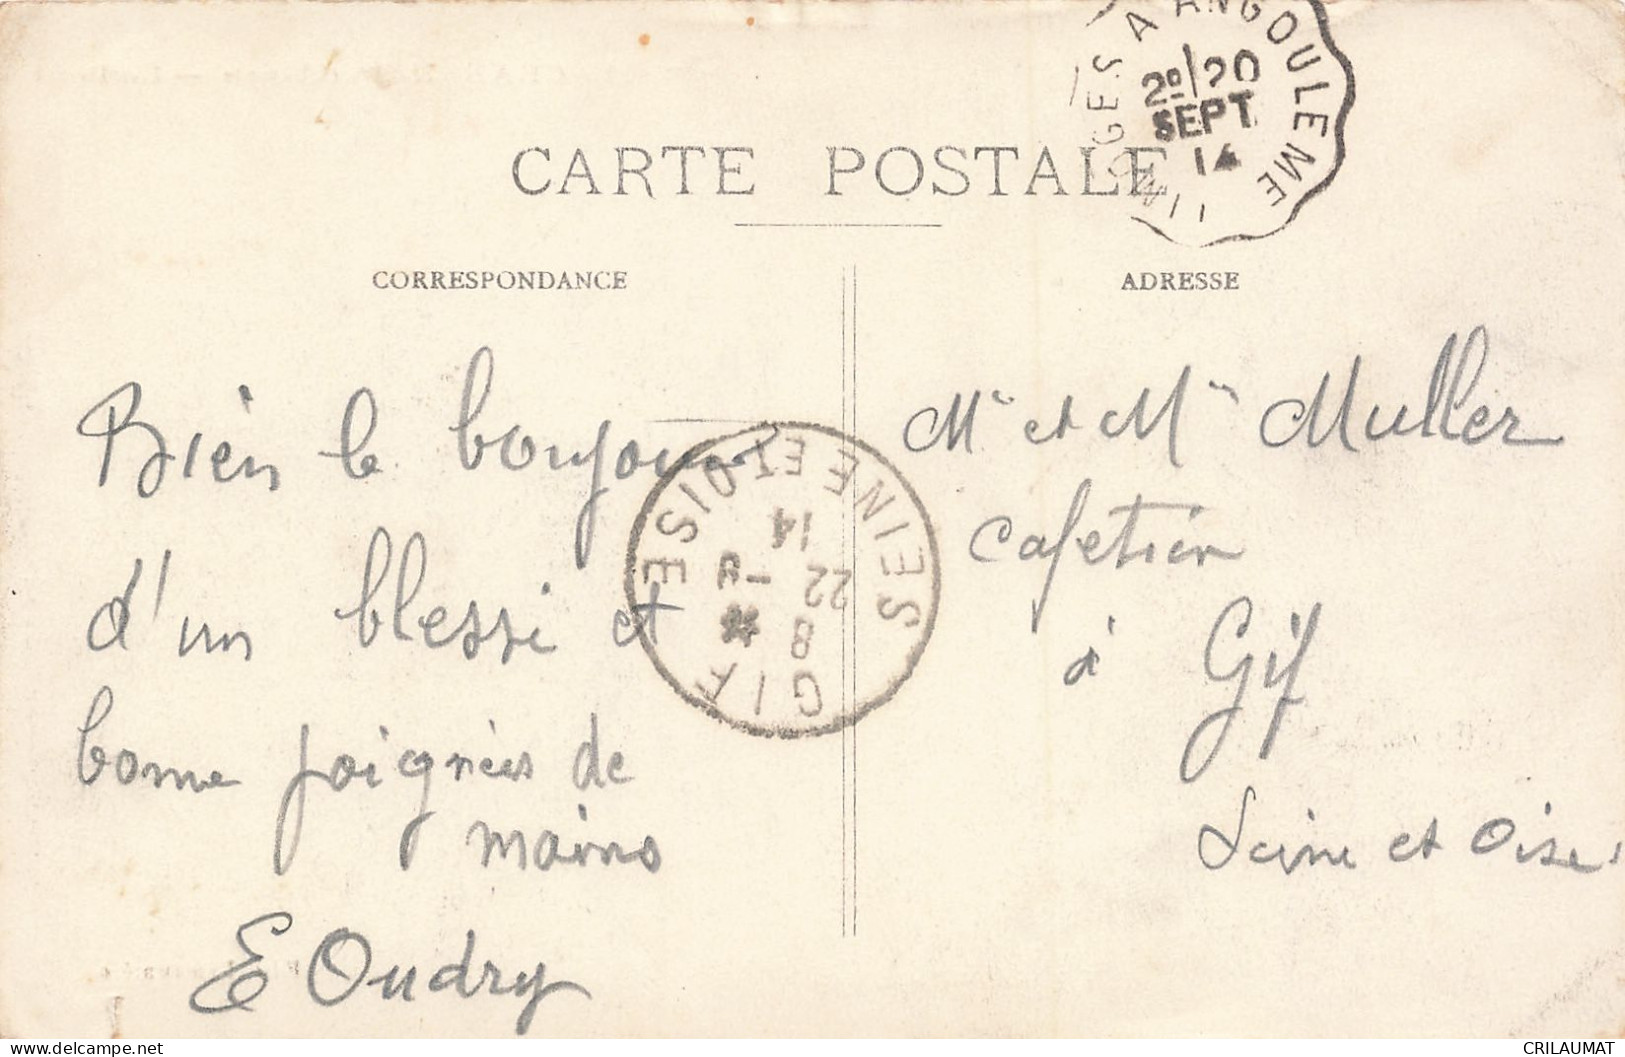 LIMOGES A ANGOULEME
2º/20
SEPT
14
CARTE POSTALE
CORRESPONDANCE
ADRESSE
Bien le bonjour
d'un blessé et
bonne poignées de
mains
E Oudry
Mr et Mme Muller
Cafetier
à Gif
Seine et Oise.
GIF
8
22
14
SEINE ET OISE
CRILAUMAT